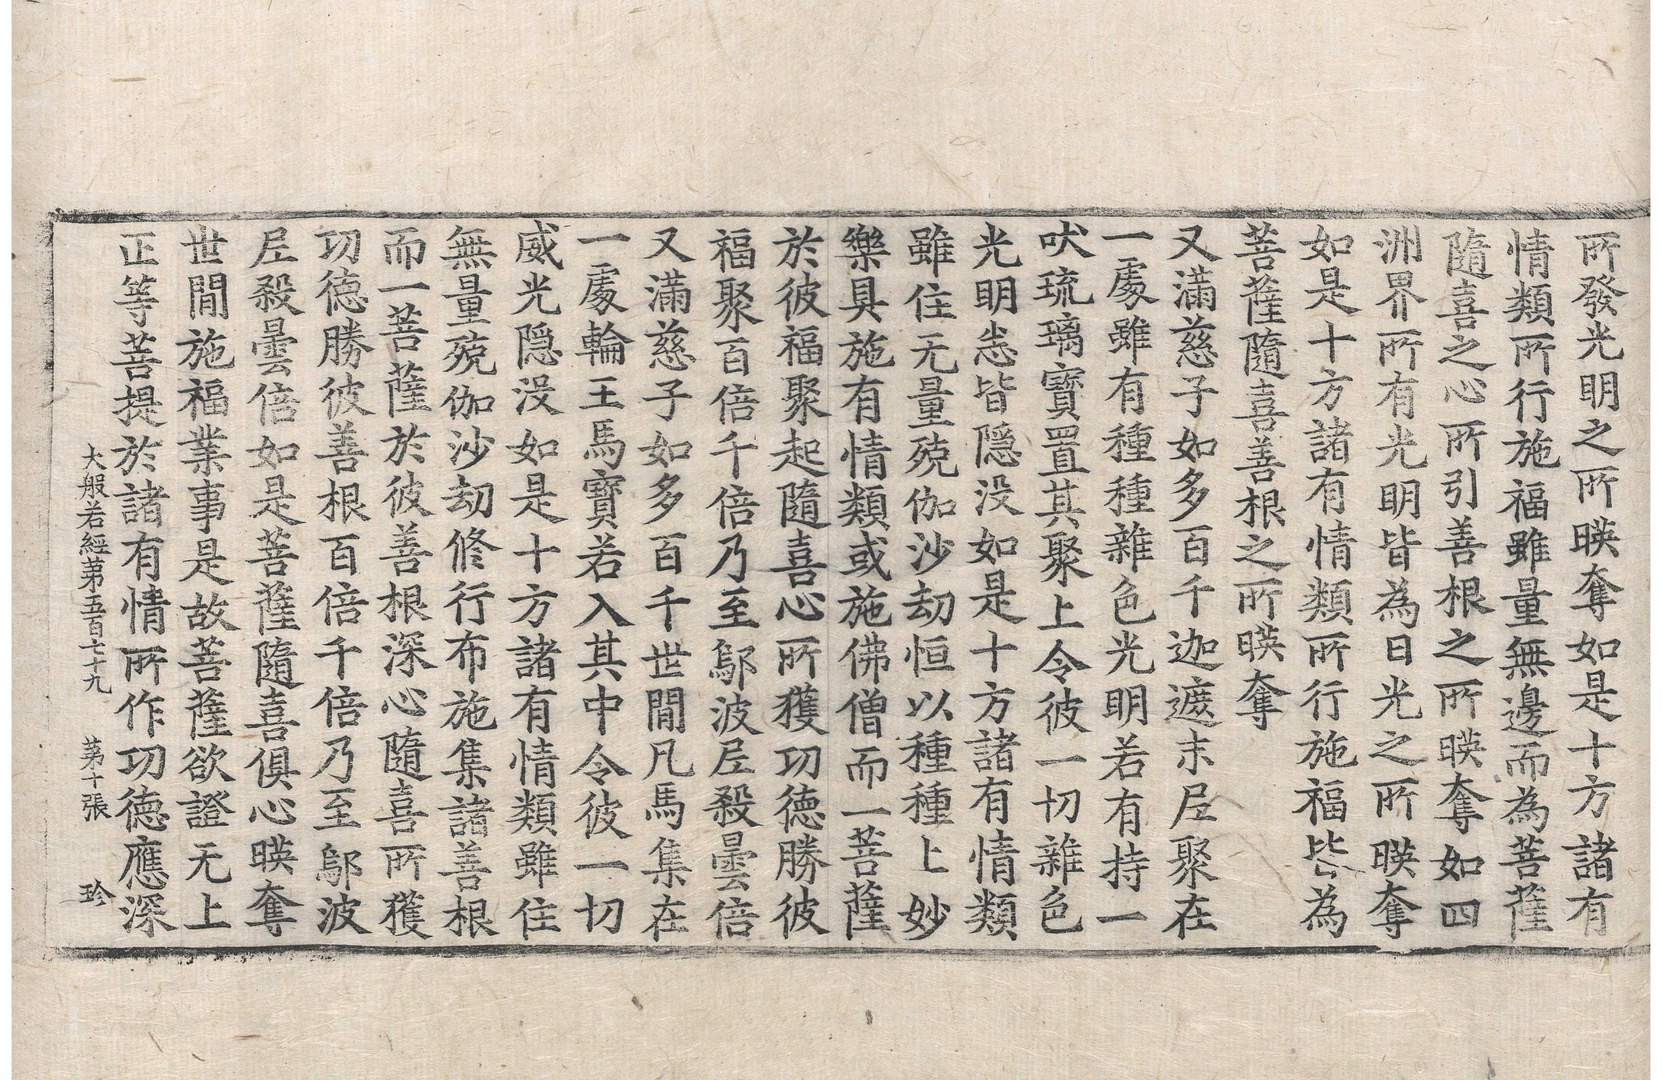 所發光明之所暎奪如是十方諸有
情類所行施福雖量無邊而為菩薩
隨喜之心所引善根之所暎奪如四
洲界所有光明皆為日光之所暎奪
如是十方諸有情類所行施福皆為
菩薩隨喜善根之所暎奪
又滿慈子如多百千迦遮末尼聚在
一處雖有種種雜色光明若有持一
吠琉璃寶置其聚上令彼一切雜色
光明悉皆隱没如是十方諸有情類
雖住无量殑伽沙劫恒以種種上妙
樂具施有情類或施佛僧而一菩薩
於彼福聚起隨喜心所獲功德勝彼
福聚百倍千倍乃至鄔波尼殺曇倍
又滿慈子如多百千世間凡馬集在
一處輪王馬寶若入其中令彼一切
威光隐没如是十方諸有情類雖住
無量殑伽沙劫修行布施集諸善根
而一菩薩於彼善根深心隨喜所獲
功德勝彼善根百倍千倍乃至鄔波
尼殺曇倍如是菩薩隨喜俱心暎奪
世間施福業事是故菩薩欲證无上
正等菩提於諸有情所作功德應深
大般若經第五百七十九 第十張 珍